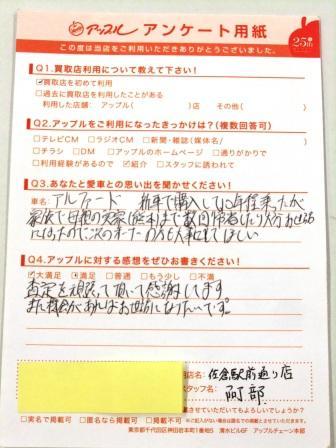 アップル アンケート用紙
25th
この度は当店をご利用いただきありがとうございました。
Q1.買取店利用について教えて下さい!
☑買取店を初めて利用
□過去に買取店を利用したことがある
利用した店舗: アップル( )店 その他( )
Q2.アップルをご利用になったきっかけは?(複数回答可)
□テレビCM □ラジオCM □新聞・雑誌(媒体名/ )
□チラシ □DM □アップルのホームページ □通りがかりで
□利用経験があるので ☑紹介 □スタッフに誘われて
Q3.あなたと愛車との思い出を聞かせください!
車名: アルファード 新車で購入して12年程乗ったが
家族で
まで数回帰省したり
になったので次のオーナーの人も大事にしてほしい
Q4.アップルに対する感想をぜひお書きください!
☑大満足 □満足 □普通 □もう少し □不満
査定を頑張って頂いて感謝してます
また機会があればお世話になりたいです。
店名: 佐倉駅前通り店
スタッフ名: 阿部
させていただいてもよろしいでしょうか?
□実名で掲載可 □匿名なら掲載可 □掲載不可
東京都千代田区神田岩本町1番地5 清水ビル6F アップルチェーン本部